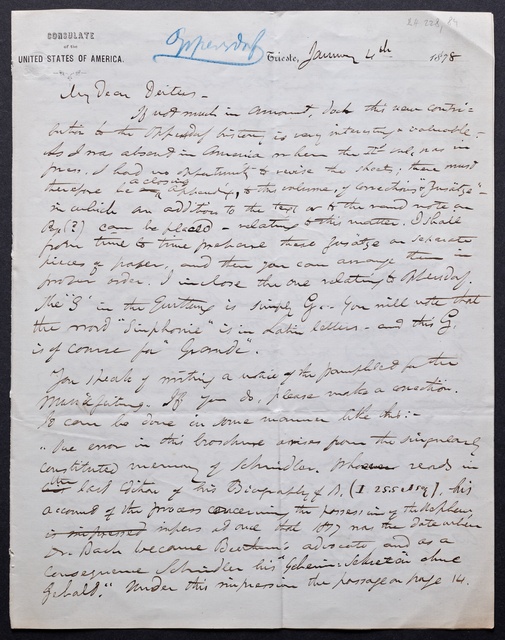 CONSULATE
of the
UNITED STATES OF AMERICA.
Oppersdorf
Trieste, January 4th 1878
My Dear Deiters -
If not much in amount, yet this new contri-
bution to the Oppersdorf history is very interesting & valuable.
As I was absent in America when the 2nd vol. was in
press, I had no opportunity to revise the sheets; there must
therefore be a closing Appendix, to the volume, of corrections & "Zusätze" -
in which an addition to the text or to the note on
Pg (?) can be placed - relating to this matter. I shall
from time to time prepare these Zusätze on separate
pieces of paper, and then you can arrange them in
proper order. I inclose the one relating to Oppersdorf.
The "G" in the Quittung is simply G. - You will note that
the word "Sinphonie" is in Latin letters - and this G.
is of course for "Grande".
You speak of writing a notice of the pamphlet for the
Musikzeitung. If you do, please make a correction.
It can be done in some manner like this: -
"One error in this brochure arises from the singularly
constituted memory of Schindler. Whoever reads in
the last edition of his Biography of B. (I. 255 & seq), his
account of the process concerning the possession of the nephew
is impressed infers at once that 1817 was the date when
Dr. Bach became Beethovn's advocate and as a
consequence Schindler his "Geheim-Sekretär ohne
Gehalt." Under this impression the passage on page 14.